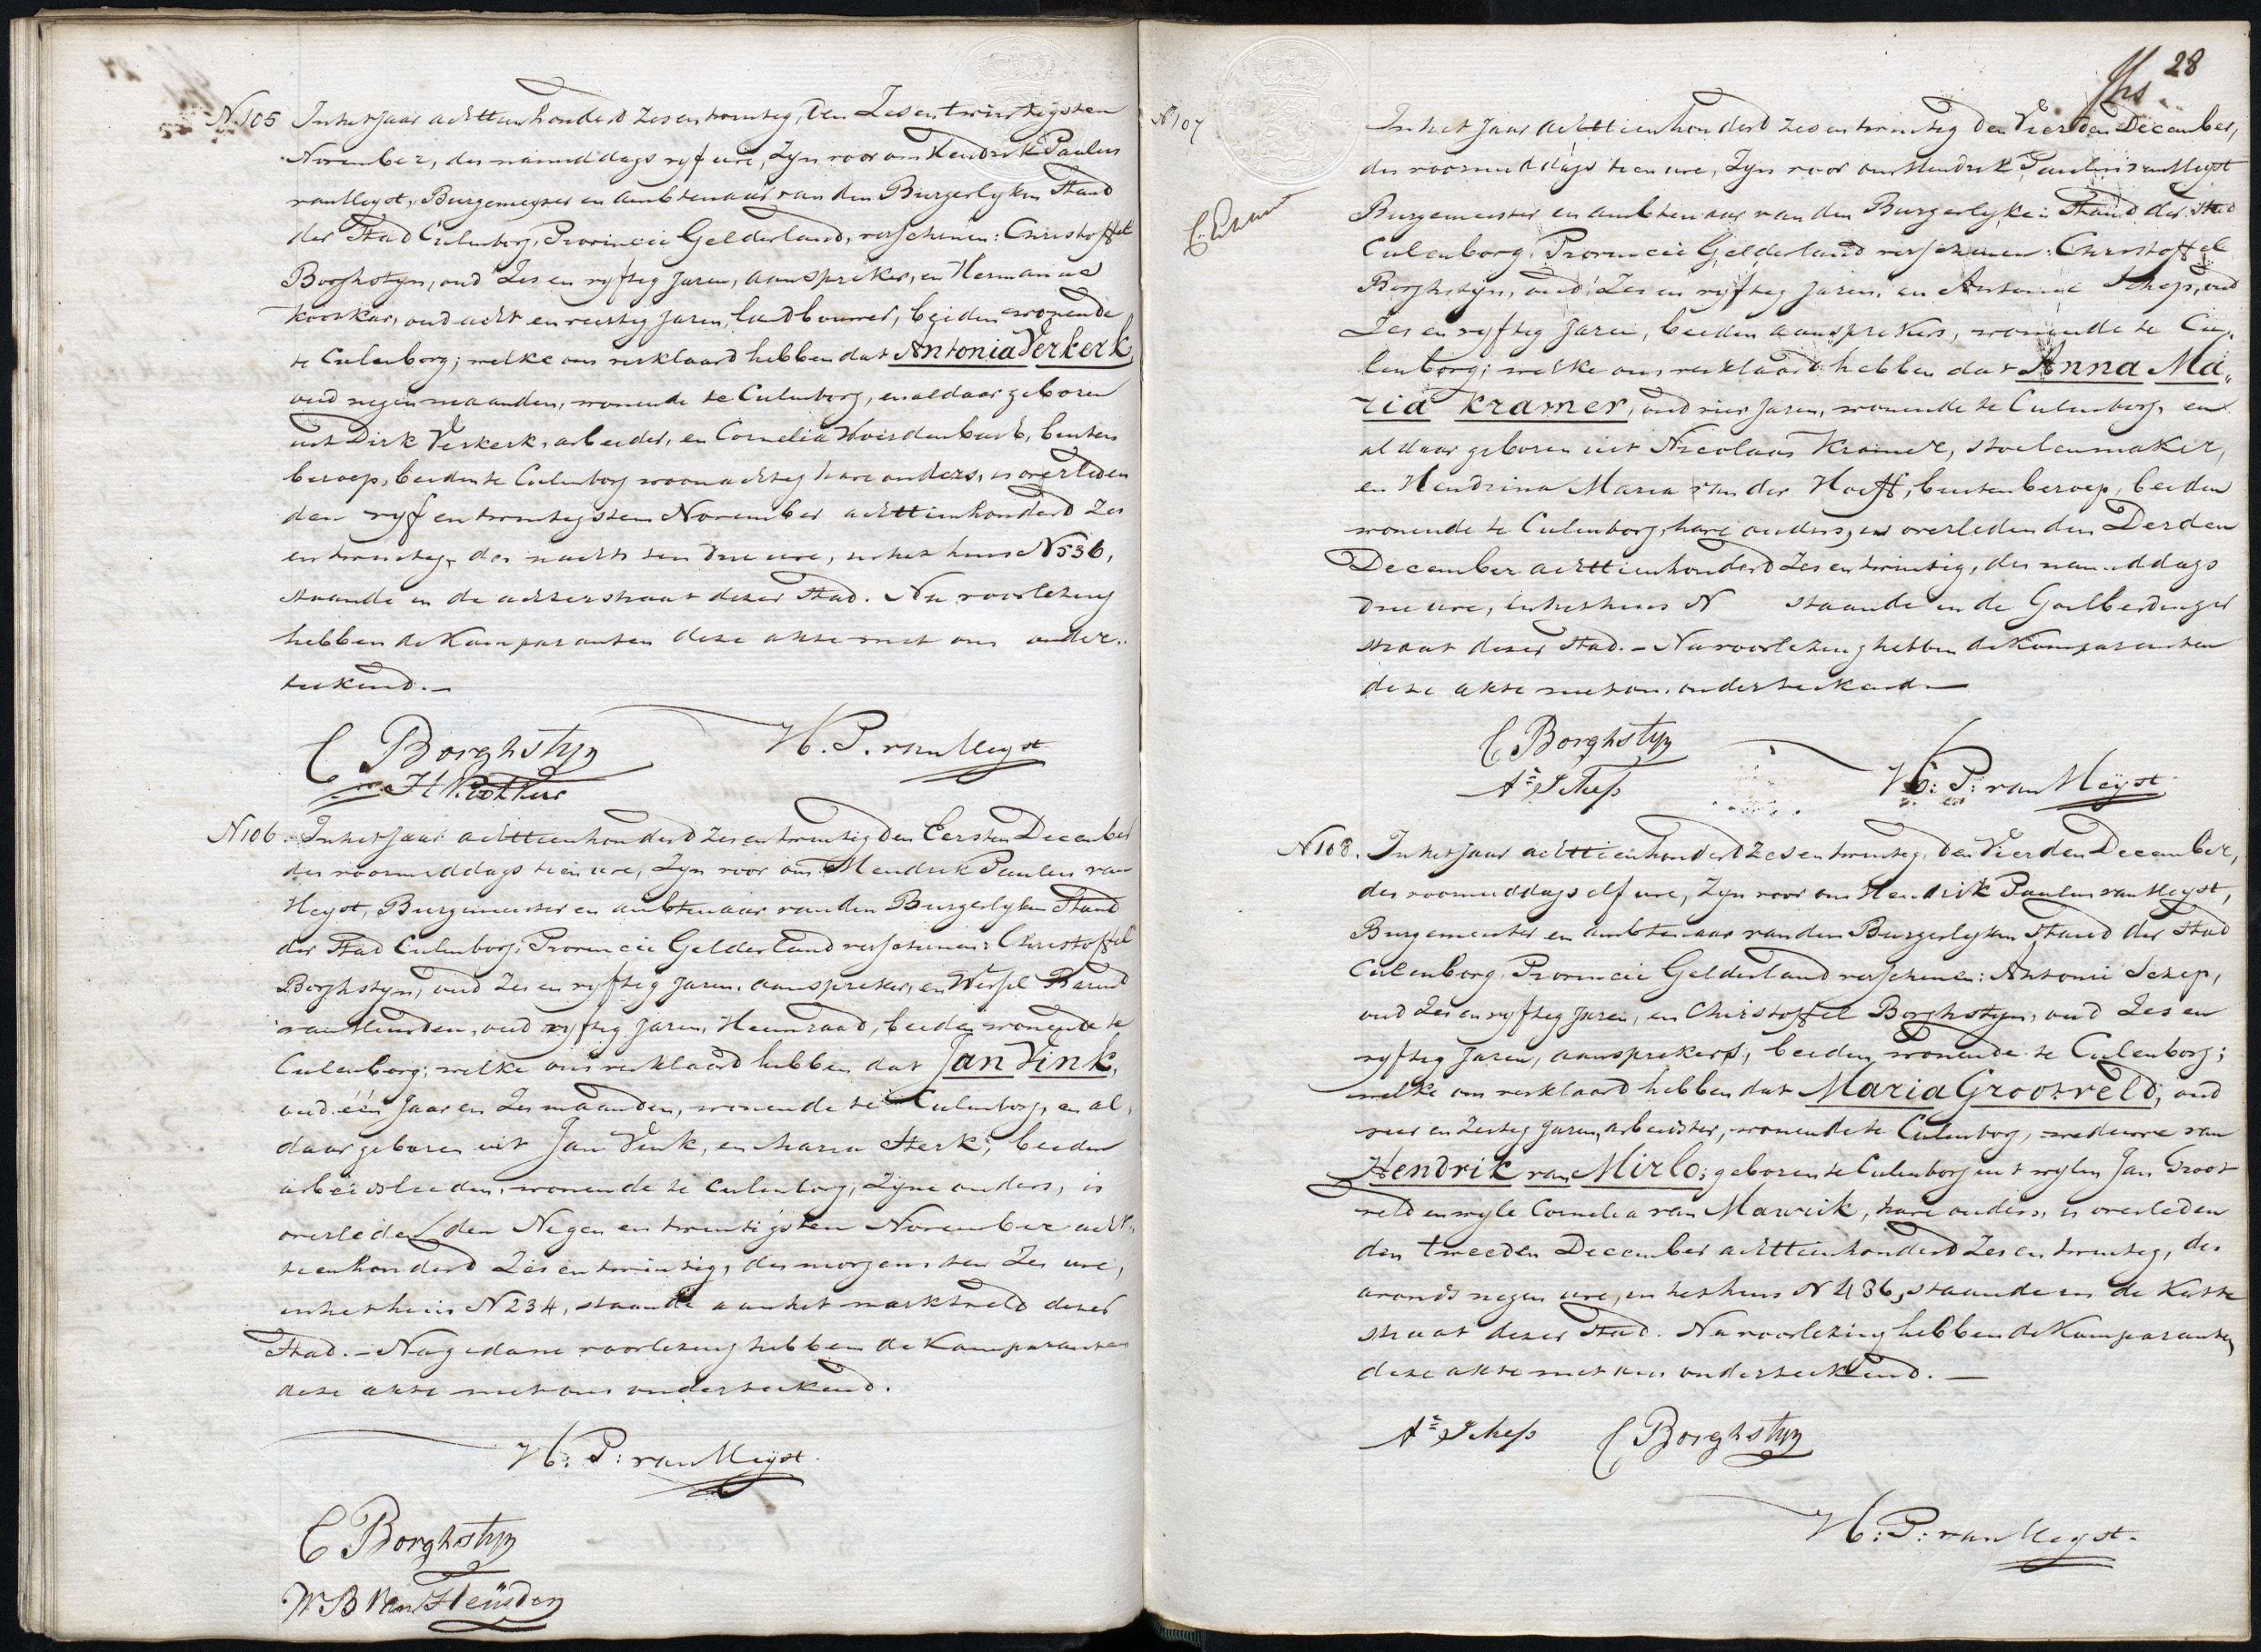 N 105 In het Jaar achttienhonderd zes en twintig, den Zes en twintigsten
November, des namiddags vyf ure, Zyn voor ons Hendrik Paulus
van Meyst, Burgemeyster en ambtenaar van den Burgerlyken Stand
der Stad Culenborg, Provincie Gelderland, verschenen: Christoffel
Borghstyn, oud Zes en vyftig Jaren, aanspreker, en Hermanus
oud acht en veertig Jaren, landbouwer, beiden wonende
te Culenborg; welke ons verklaard hebben dat Antonia Verkerk,
oud negen maanden, wonende te Culenborg, en aldaar geboren
uit Dirk Verkerk, arbeider, en Cornelia buiten
beroep, beiden te Culenborg woonachtig hare ouders, is overleden
den vyf en twintigsten November achttienhonderd Zes
en twintig, des nachts ten drie ure, in het huis N 536,
staande in de achterstraat dezer Stad. Na voorlezing
hebben de Komparanten deze akte met ons onder„
teekend.—
C Borghstyn H. P. van Meyst
N 106. In het Jaar achttienhonderd zes en twintig den Eersten December
des voormiddags tien ure, Zyn voor ons Hendrik Paulus van
Meyst, Burgemeester en ambtenaar van den Burgerlyken Stand
der Stad Culenborg, Provincie Gelderland verschenen: Christoffel
Borghstyn, oud Zes en vyftig Jaren, aanspreker, en Wessel Barend
van Heusden, oud vyftig Jaren, Heemraad, beiden wonende te
Culenborg; welke ons verklaard hebben dat Jan Vink,
oud één Jaar en Zes maanden, wonende te Culenborg, en al„
daar geboren uit Jan Vink, en Maria Sterk, beiden
arbeidslieden, wonende te Culenborg, Zyne ouders, is
overleden den Negen en twintigsten November acht„
tienhonderd Zes en twintig, des morgens ten Zes ure,
in het huis N 234, staande aan het marktveld dezer
Stad.— Na gedane voorlezing hebben de Komparanten
deze akte met ons onderteekend.
H: P: van Meyst.
C Borghstyn
W B Van Heüsden
28
N 107
In het Jaar achttienhonderd zes en twintig den Vierden December,
des voormiddags tien ure, Zyn voor ons Hendrik Paulus van Meyst
Burgemeester en ambtenaar van den Burgerlyken Stand der Stad
Culenborg, Provincie Gelderland verschenen: Christoffel
Borghstyn, oud Zes en vyftig Jaren, en Antonie Schep, oud
Zes en vyftig Jaren, beiden aansprekers, wonende te Cu„
lenborg; welke ons verklaard hebben dat Anna Ma„
ria Kramer, oud vier Jaren, wonende te Culenborg, en
aldaar geboren uit Nicolaas Kramer, stoelenmaker,
en Hendrina Maria van der Hoeff, buiten beroep, beiden
wonende te Culenborg, hare ouders, is overleden den Derden
December achttienhonderd Zes en twintig, des namiddags
drie ure, in het huis N staande in de Goilberdinger
straat dezer Stad.— Na voorlezing hebben de Komparanten
deze akte met ons onderteekend—
C Borghstyn
An Schep H: P: van Meÿst
N 108. In het Jaar achttienhonderd zes en twintig, den Vierden December,
des voormiddags elf ure, Zyn voor ons Hendrik Paulus van Meyst,
Burgemeester en ambtenaar van den Burgerlyken Stand der Stad
Culenborg, Provincie Gelderland verschenen: Antonie Schep,
oud Zes en vyftig Jaren, en Christoffel Borghstyn, oud Zes en
vyftig Jaren, aansprekers, beiden wonende te Culenborg;
welke ons verklaard hebben dat Maria Grootveld, oud
vier en Zestig Jaren, arbeidster, wonende te Culenborg, weduwe van
Hendrik van Mirlo; geboren te Culenborg uit wylen Jan Groot
veld en wyle Cornelia van Marwick, hare ouders, is overleden
den tweeden December achttienhonderd Zes en twintig, des
avonds negen ure, in het huis N 436, staande in de Katte
straat dezer Stad. Na voorlezing hebben de Komparanten
deze akte met ons onderteekend.—
An Schep C Borghstyn
H: P: van Meyst.